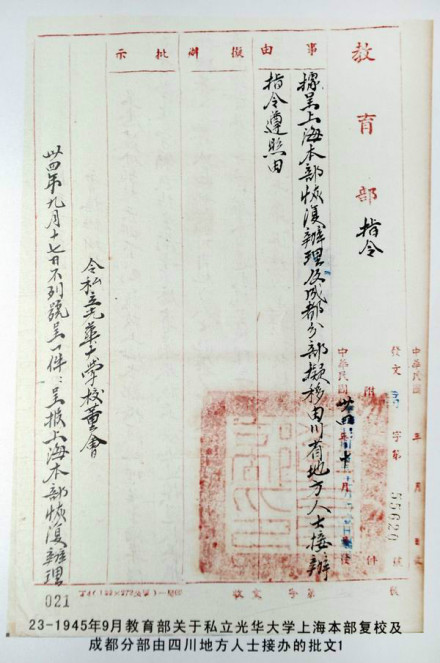 教育部
指令
事由
擬辦
批示
據呈上海本部恢復辦理及成都分部擬移由川省地方人士接辦
指令遵照由
令私立光華大學校董會
卅四年九月十七日不列號呈一件：呈報上海本部恢復辦理
發文
字第
55620
號
中華民國
年
月
日
附
件
中華民國
卅四
021
23-1945年9月教育部关于私立光华大学上海本部复校及
成都分部由四川地方人士接办的批文1